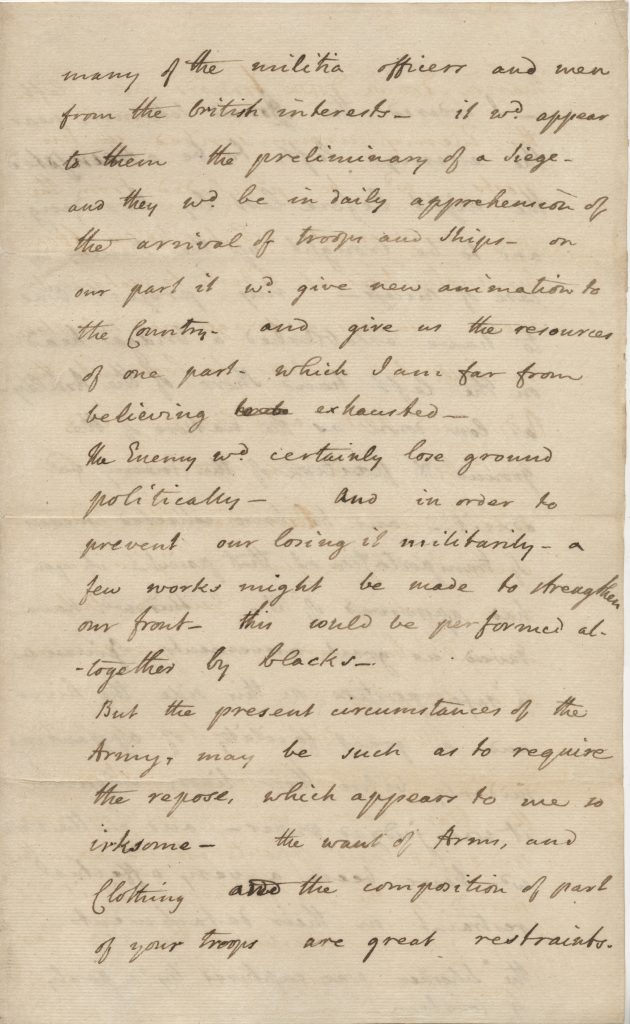 many of the militia officers and men
from the british interests— it wd. appear
to them the preliminary of a siege—
and they wd. be in daily apprehension of
the arrival of troops and ships— on
our part it wd. give new animation to
the Country— and give us the resources
of one part— which I am far from
believing exhausted—
the Enemy wd. certainly lose ground
politically— and in order to
prevent our losing it militarily— a
few works might be made to streagthen
our front— this could be performed al-
-together by blacks—.
But the present circumstances of the
Army, may be such as to require
the repose, which appears to me so
irksome— the want of Arms, and
Clothing and the composition of part
of your troops are great restraints.